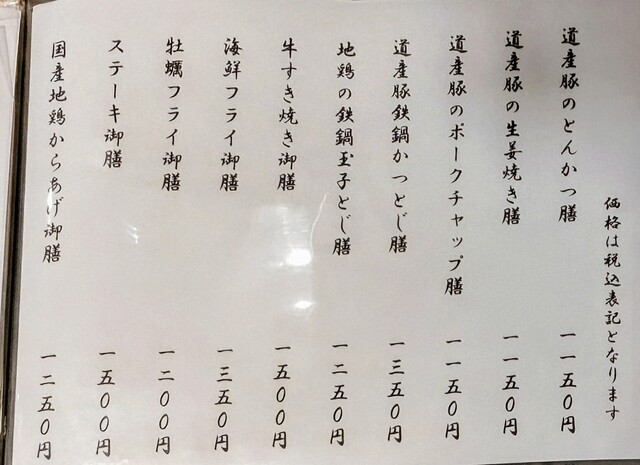 価格は税込表記となります
道産豚のとんかつ膳 一一五0円
道産豚の生姜焼き膳 一一五0円
道産豚のポークチャップ膳 一一五0円
道産豚鉄鍋かつとじ膳 一三五0円
地鶏の鉄鍋玉子とじ膳 一二五0円
牛すき焼き御膳 一五00円
海鮮フライ御膳 一三五0円
牡蠣フライ御膳 一二00円
ステーキ御膳 一五00円
国産地鶏からあげ御膳 一二五0円